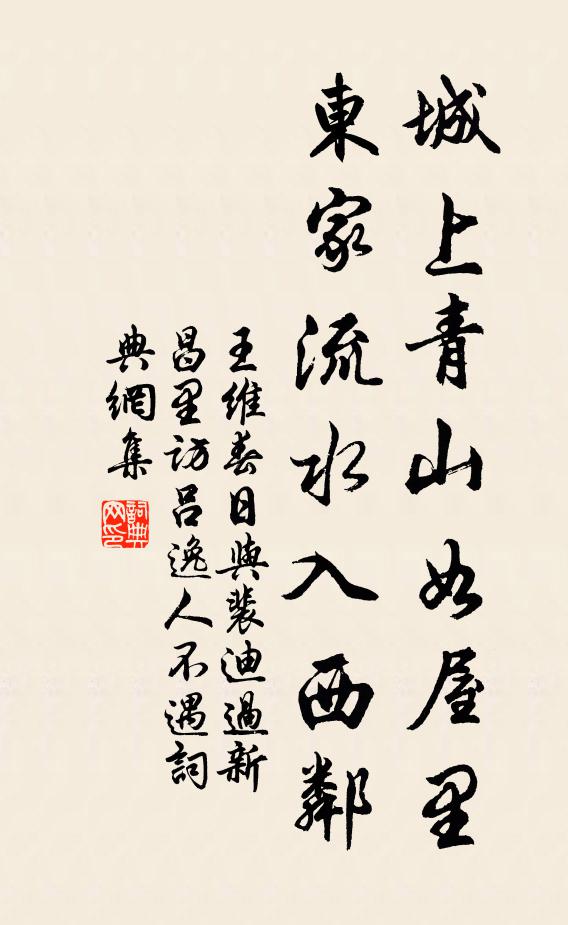 城上青山如屋里
東家流水入西鄰
王維春日與裴迪過新
昌里訪呂逸人不遇詞
典網集
詞典
网印